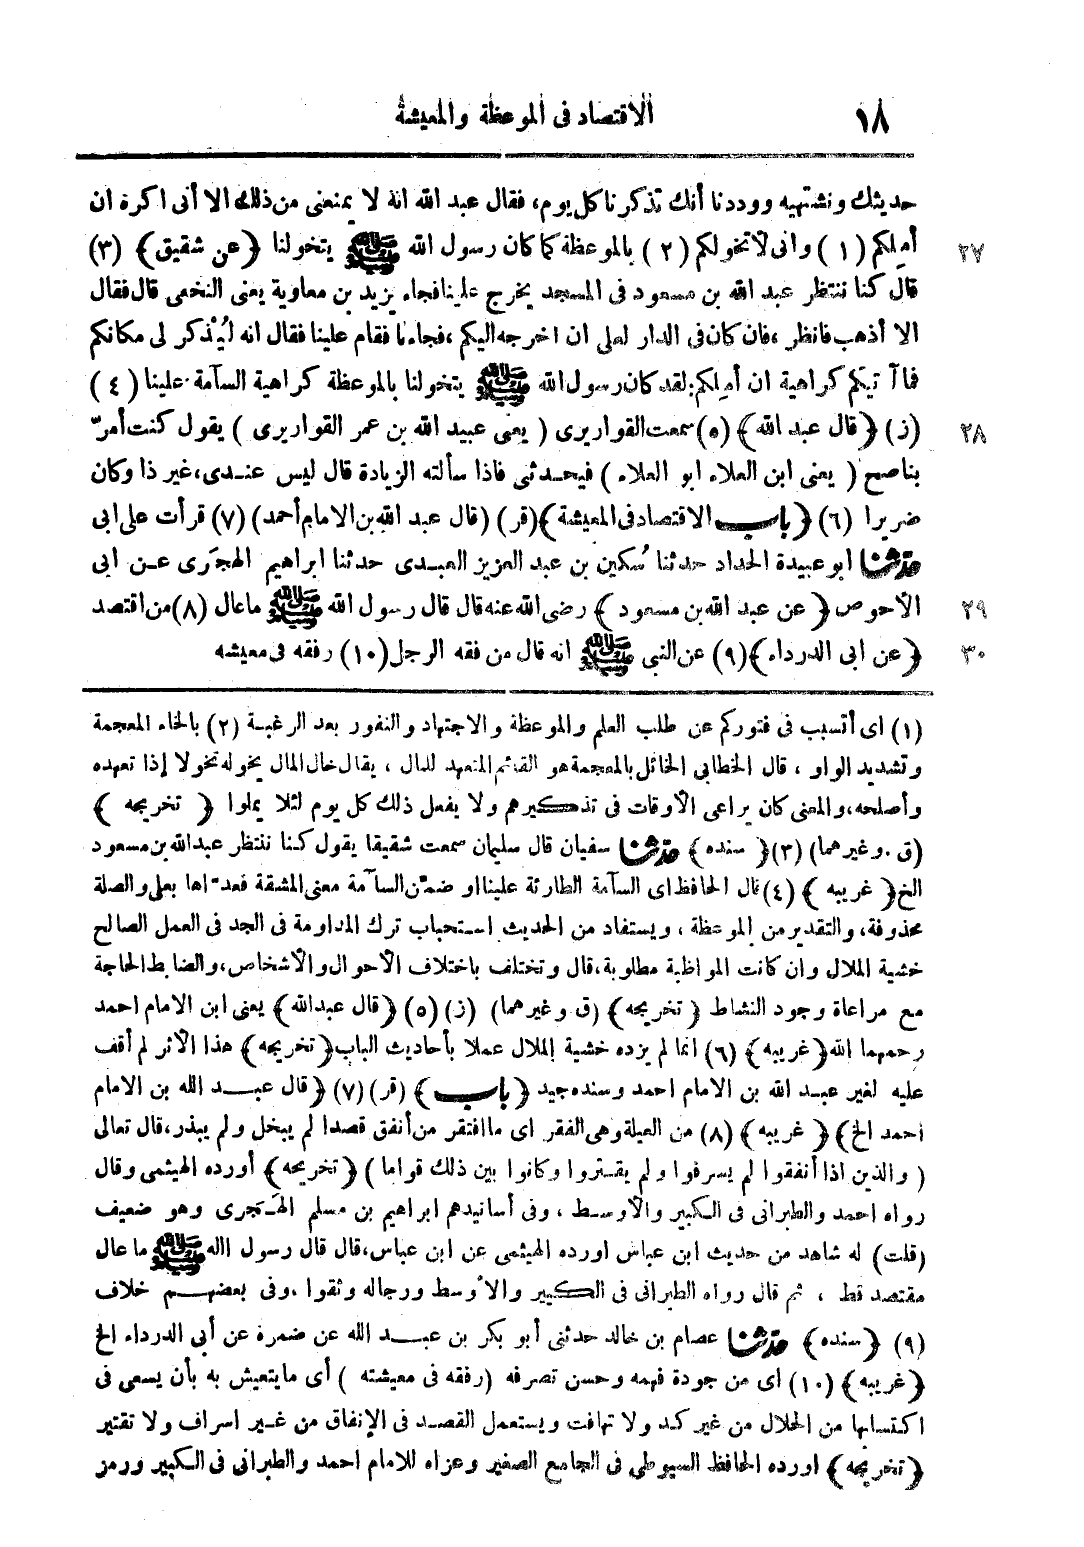 ١٨ الاقتصاد فى الموعظة والمعيشة
حديثك ونشتهيه ووددنا أنك تذكرنا كل يوم، فقال عبد الله انه لا يمنعنى من ذلك الا أنى اكره ان
٢٧ أملكم (١) وانى لأتخولكم (٢) بالموعظة كما كان رسول الله ﷺ يتخولنا ﴿عن شقيق﴾ (٣)
قال كنا ننتظر عبد الله بن مسعود فى المسجد يخرج علينا فجاء يزيد بن معاوية يعنى النخعى قال فقال
الا أذهب فانظر، فان كان فى الدار لعلى ان اخرجه اليكم، فجاءنا فقام علينا فقال انه ليُذكر لى مكانكم
فما آتيكم كراهية ان أملكم، لقد كان رسول الله ﷺ يتخولنا بالموعظة كراهية السآمة علينا (٤)
٢٨ (ز) ﴿قال عبد الله﴾ (٥) سمعت القواريرى ( يعنى عبيد الله بن عمر القواريرى ) يقول كنت أمرّ
بناصح ( يعنى ابن العلاء ابو العلاء ) فيحدثنى فاذا سألته الزيادة قال ليس عندى، غير ذا وكان
ضريرا (٦) ﴿باب الاقتصاد فى المعيشة﴾ (قر) (قال عبد الله بن الامام أحمد) (٧) قرأت على ابى
حدثنا ابو عبيدة الحداد حدثنا سُكين بن عبد العزيز العبدى حدثنا ابراهيم الهجَرى عن ابى
٢٩ الأحوص ﴿عن عبد الله بن مسعود﴾ رضى الله عنه قال قال رسول الله ﷺ ما عال (٨) من اقتصد
٣٠ ﴿عن ابى الدرداء﴾ (٩) عن النبى ﷺ انه قال من فقه الرجل (١٠) رفقه فى معيشه
(١) اى أتسبب فى فتوركم عن طلب العلم والموعظة والاجتهاد والنفور بعد الرغبة (٢) بالخاء المعجمة
وتشديد الواو، قال الخطابى الخائل بالمعجمة هو القائم المتعهد للمال، يقال خال المال يخوله تخولا إذا تعهده
وأصلحه، والمعنى كان يراعى الأوقات فى تذكيرهم ولا يفعل ذلك كل يوم لئلا يملوا ﴿تخريجه﴾
(ق. وغيرهما) (٣) ﴿سنده﴾ حدثنا سفيان قال سليمان سمعت شقيقا يقول كنا ننتظر عبد الله بن مسعود
الخ ﴿غريبه﴾ (٤) قال الحافظ اى السآمة الطارئة علينا او ضمّن السآمة معنى المشقة فعداها بعلى والصلة
محذوفة، والتقدير من الموعظة، ويستفاد من الحديث استحباب ترك المداومة فى الجد فى العمل الصالح
خشية الملال وان كانت المواظبة مطلوبة، قال وتختلف باختلاف الأحوال والأشخاص، والضابط الحاجة
مع مراعاة وجود النشاط ﴿تخريجه﴾ (ق وغيرهما) (ز) (٥) ﴿قال عبدالله﴾ يعنى ابن الامام احمد
رحمهما الله ﴿غريبه﴾ (٦) انما لم يزده خشية الملال عملا بأحاديث الباب ﴿تخريجه﴾ هذا الأثر لم أقف
عليه لغير عبد الله بن الامام احمد وسنده جيد ﴿باب﴾ (قر) (٧) ﴿قال عبد الله بن الامام
احمد الخ﴾ ﴿غريبه﴾ (٨) من العيلة وهى الفقر اى ما افتقر من أنفق قصدا لم يبخل ولم يبذر، قال تعالى
( والذين اذا أنفقوا لم يسرفوا ولم يقتروا وكانوا بين ذلك قواما ) ﴿تخريجه﴾ أورده الهيثمى وقال
رواه احمد والطبرانى فى الكبير والأوسط، وفى أسانيدهم ابراهيم بن مسلم الهَجَرى وهو ضعيف
(قلت) له شاهد من حديث ابن عباس اورده الهيثمى عن ابن عباس، قال قال رسول الله ﷺ ما عال
مقتصد قط، ثم قال رواه الطبرانى فى الكبير والأوسط ورجاله وثقوا، وفى بعضهم خلاف
(٩) ﴿سنده﴾ حدثنا عصام بن خالد حدثنى أبو بكر بن عبد الله عن ضمرة عن أبى الدرداء الخ
﴿غريبه﴾ (١٠) اى من جودة فهمه وحسن تصرفه (رفقه فى معيشته ) أى ما يتعيش به بأن يسعى فى
اكتسابها من الحلال من غير كد ولا تهافت ويستعمل القصد فى الإنفاق من غير اسراف ولا تقتير
﴿تخريجه﴾ اورده الحافظ السيوطى فى الجامع الصغير وعزاه للامام احمد والطبرانى فى الكبير ورمز